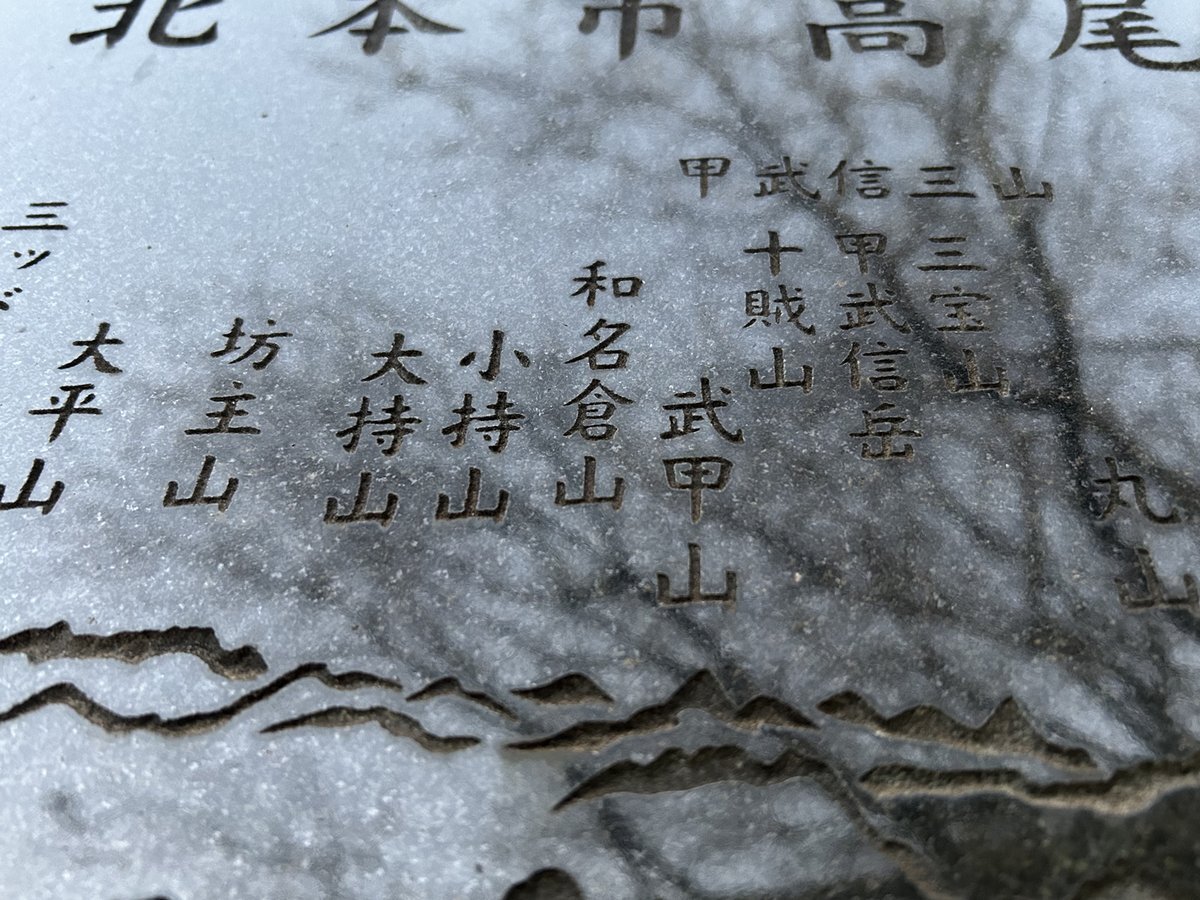 北本市高尾
甲武信三山
丸山
三宝山
甲武信岳
十賊山
武甲山
和名倉山
小持山
大持山
坊主山
大平山
三ッド